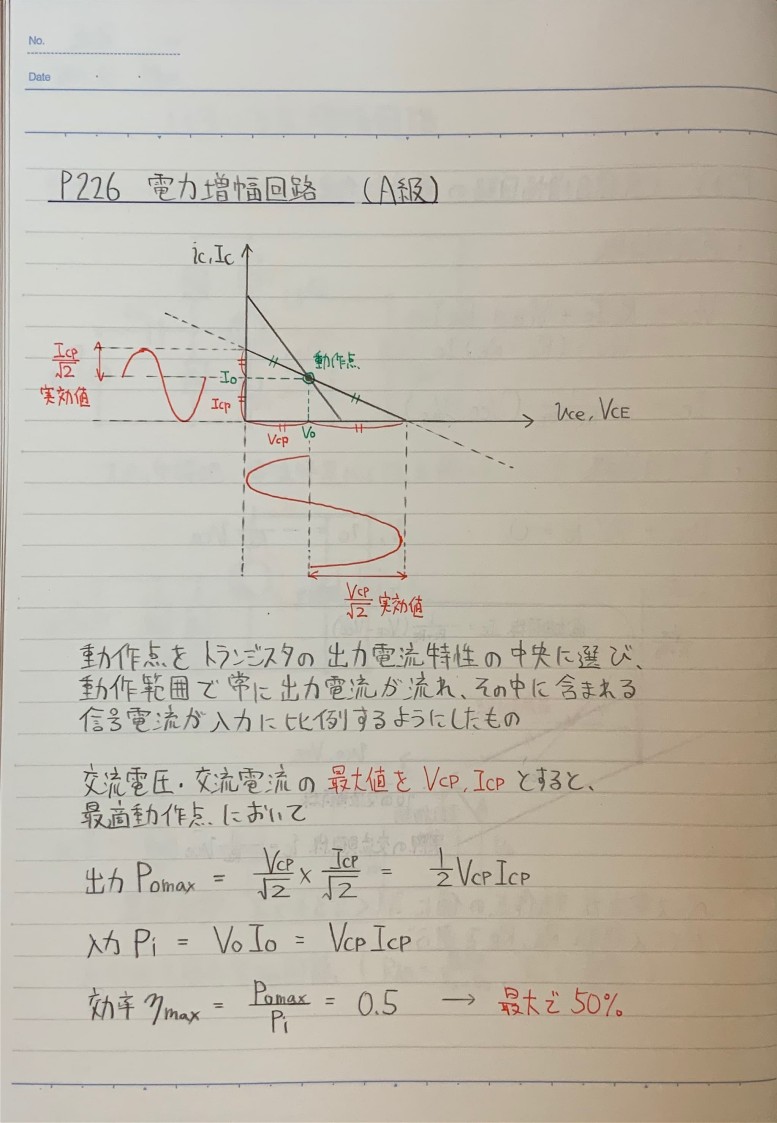 No.
Date
P226 電力増幅回路 (A級)
ic, Ic
Icp/√2
実効値
動作点
Io
Icp
Vcp
Vo
vce, VCE
Vcp/√2 実効値
動作点をトランジスタの出力電流特性の中央に選び、
動作範囲で常に出力電流が流れ、その中に含まれる
信号電流が入力に比例するようにしたもの
交流電圧・交流電流の最大値をVcp, Icpとすると、
最適動作点において
出力 Pomax = Vcp/√2 × Icp/√2 = 1/2 VcpIcp
入力 Pi = VoIo = VcpIcp
効率 ηmax = Pomax/Pi = 0.5 → 最大で50%